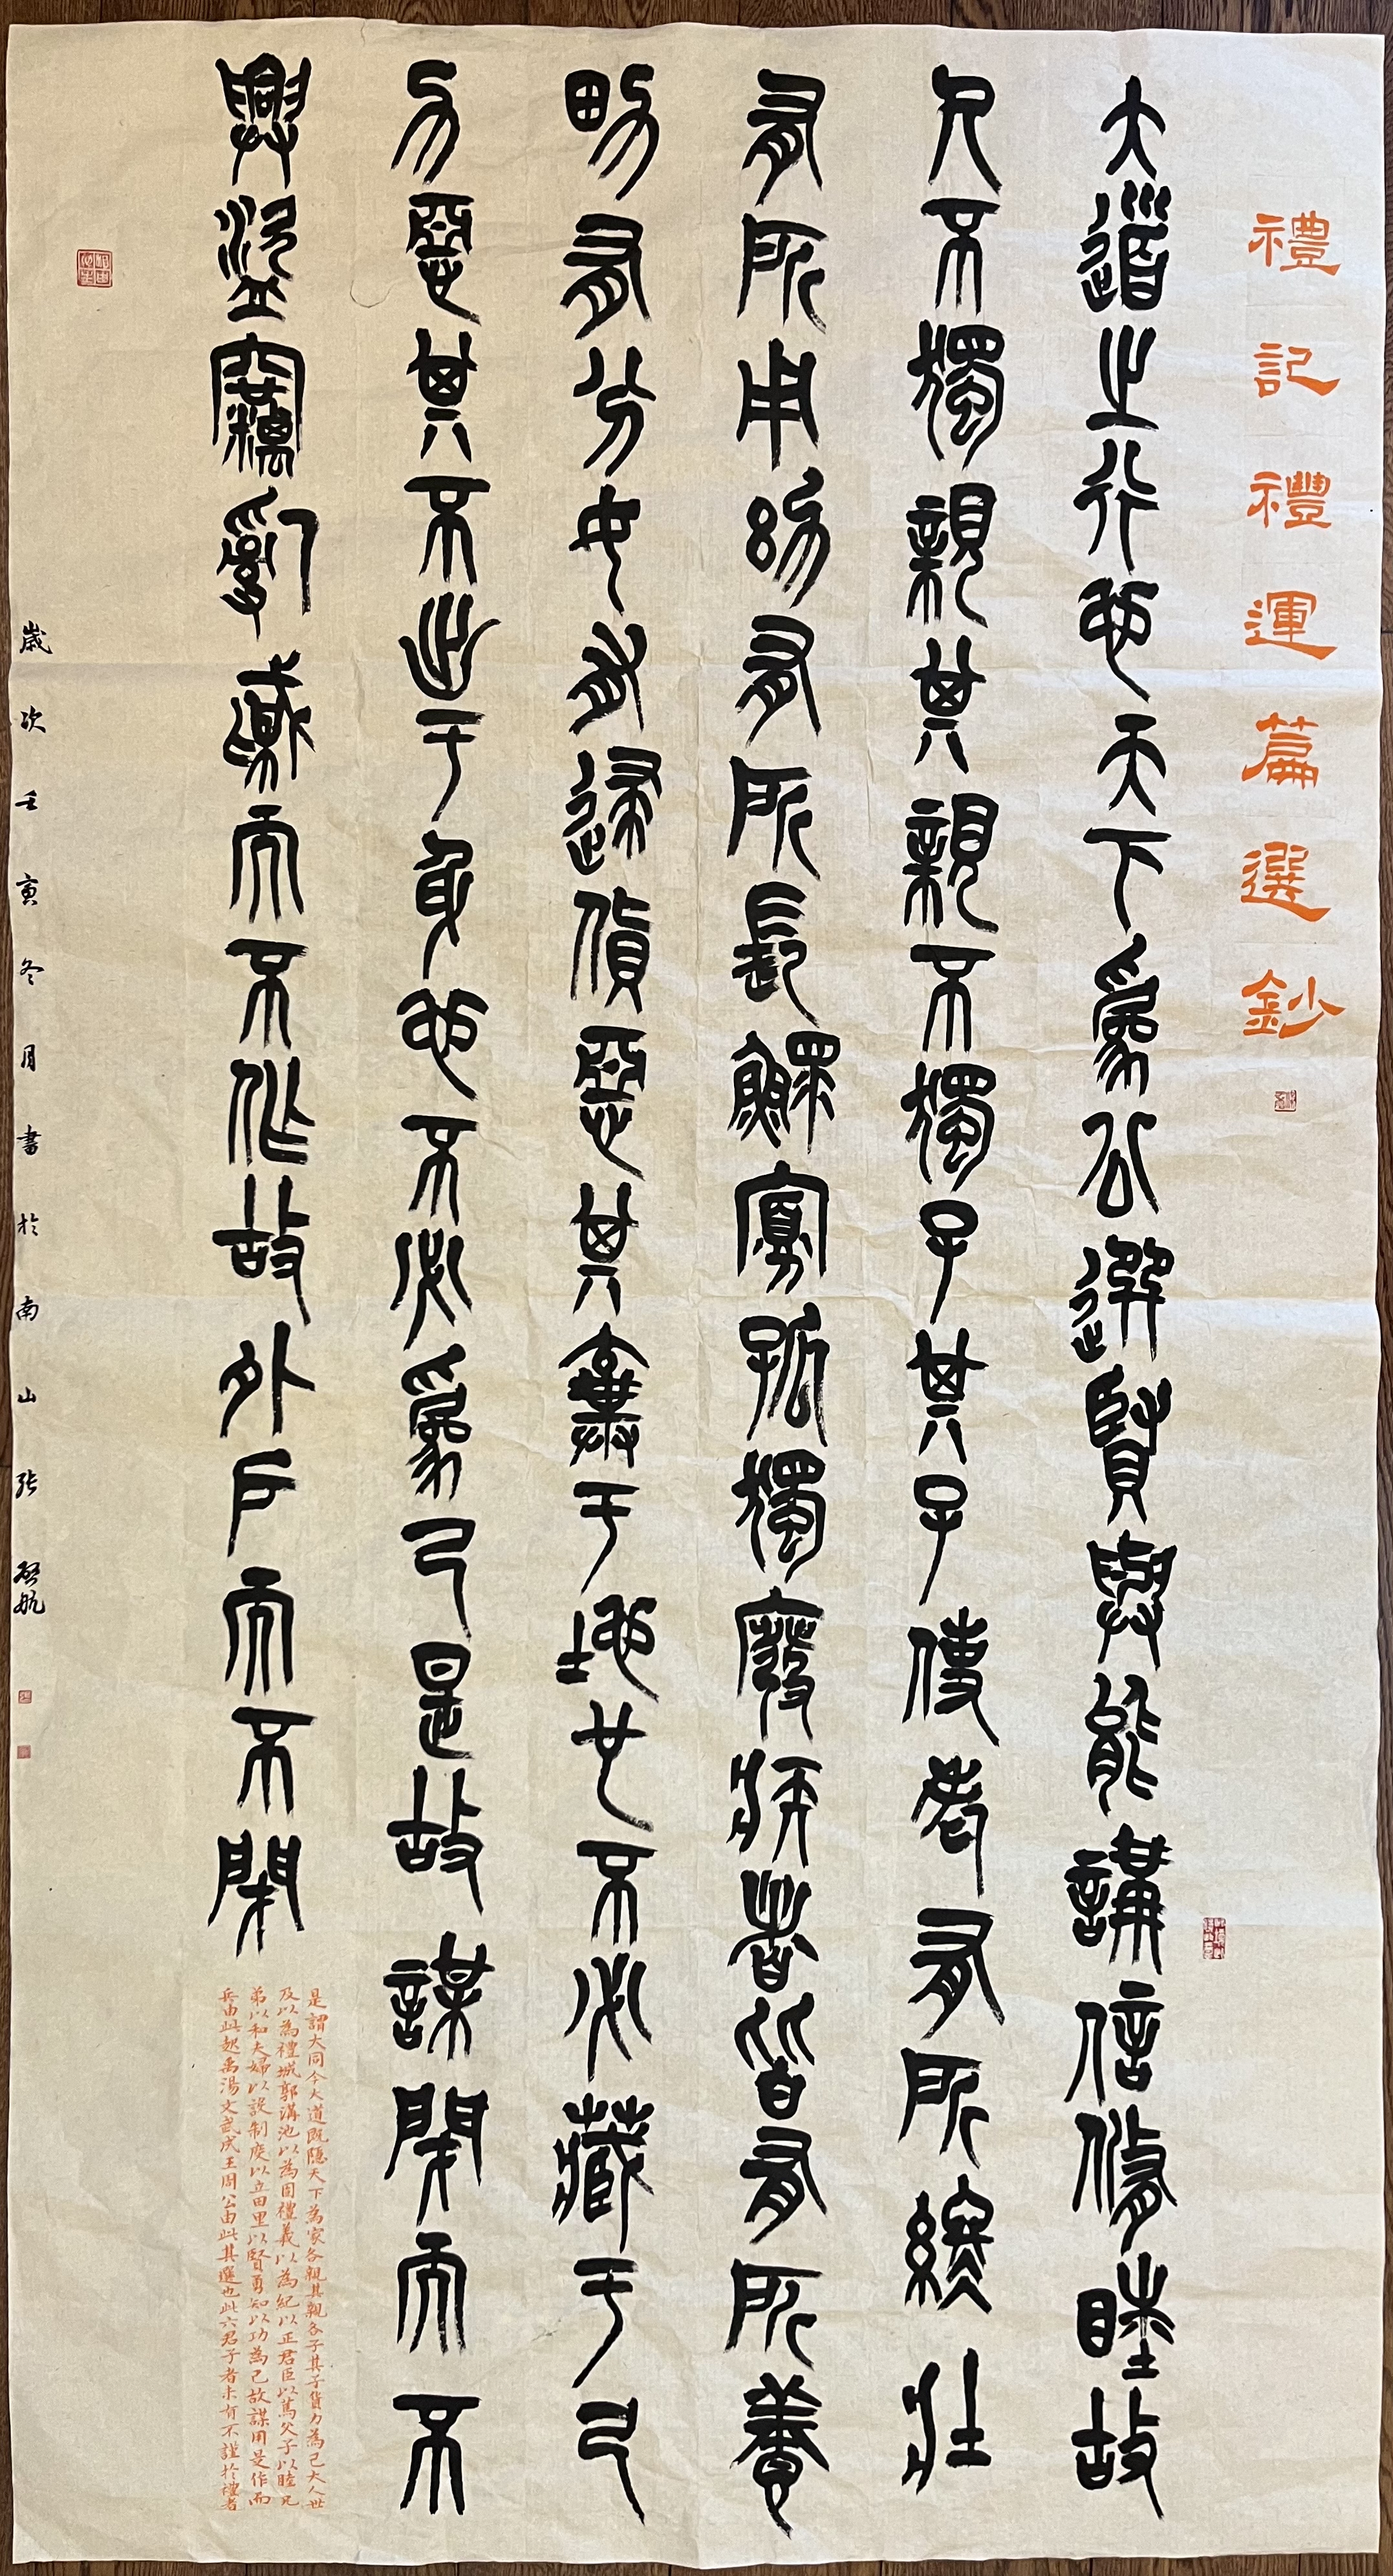 禮記禮運篇選鈔
大道之行也天下為公選賢與能講信脩睦故
人不獨親其親不獨子其子使老有所終壯
有所用幼有所長鰥寡孤獨廢疾者皆有所養
男有分女有歸貨惡其棄于地也不必藏于己
力惡其不出于身也不必為己是故謀閉而不
興盜竊亂賊而不作故外戶而不閉
是謂大同今大道既隱天下為家各親其親各子其子貨力為己大人世
及以為禮城郭溝池以為固禮義以為紀以正君臣以篤父子以睦兄
弟以和夫婦以設制度以立田里以賢勇知以功為己故謀用是作而
兵由此起禹湯文武成王周公由此其選也此六君子者未有不謹於禮者
歲次壬寅冬月書於南山張啓航